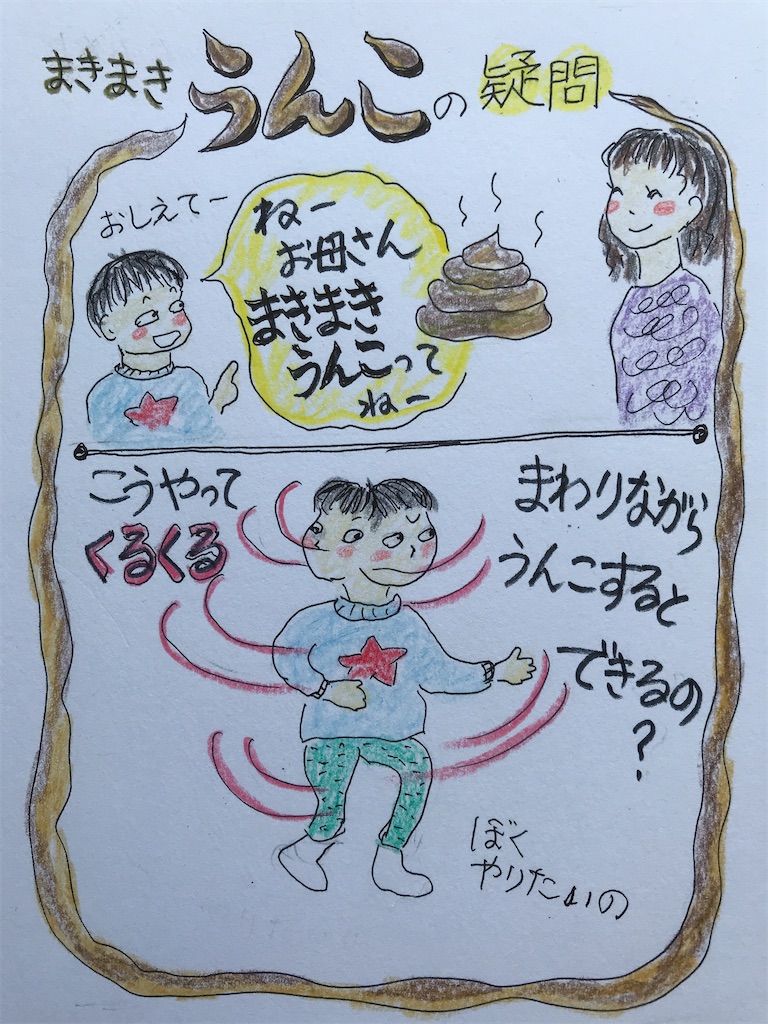 まきまきうんこの疑問
おしえてー
ねー
お母さん
まきまき
うんこって
ねー
こうやって
くるくる
まわりながら
うんこすると
できるの
?
ぼく
やりたいの